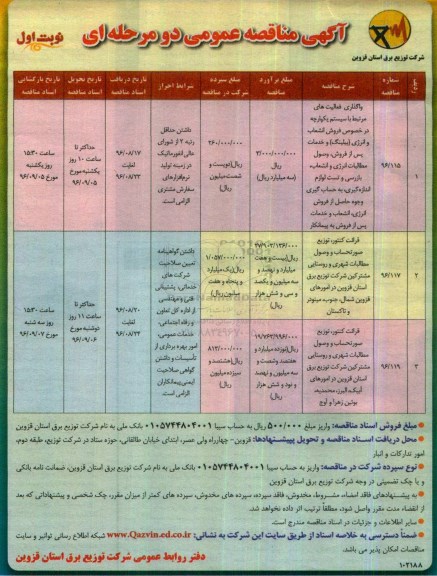 آگهی مناقصه عمومی دو مرحله ای
نوبت اول
شرکت توزیع برق استان قزوین
ردیف
شماره مناقصه
شرح مناقصه
مبلغ برآورد
مبلغ سپرده شرکت در مناقصه
شرایط احراز
تاریخ دریافت اسناد مناقصه
تاریخ تحویل اسناد مناقصه
تاریخ بازگشایی اسناد مناقصه
۱
۹۶/۱۱۵
واگذاری فعالیت های
مرتبط با سیستم یکپارچه
در خصوص فروش انشعاب
و انرژی (بیلینگ) و خدمات
پس از فروش، وصول
مطالبات انرژی و انشعاب،
بازرسی و تست لوازم
اندازه گیری، به حساب گیری
وجوه حاصل از فروش
انرژی، انشعاب و خدمات
پس از فروش به پیمانکار
۳/۰۰۰/۰۰۰/۰۰۰
ریال
(سه میلیارد ریال)
۲۶۰/۰۰۰/۰۰۰
ریال(دویست و
شصت میلیون
ریال)
داشتن حداقل
رتبه ۲ از شورای
عالی انفورماتیک
در زمینه تولید
نرم‌افزارهای
سفارش مشتری
الزامی است.
۹۶/۰۸/۱۷
لغایت
۹۶/۰۸/۲۳
حداکثر تا
ساعت ۱۰ روز
یکشنبه مورخ
۹۶/۰۹/۰۵
ساعت ۱۵:۳۰
روز یکشنبه
مورخ ۹۶/۰۹/۰۵
۲
۹۶/۱۱۷
قرائت کنتور، توزیع
صورتحساب و وصول
مطالبات شهری و روستایی
مشترکین شرکت توزیع برق
استان قزوین در امورهای
قزوین شمال، جنوب، مینودر
و تاکستان
ریال(بیست و هفت
میلیارد و نهصد و
سه میلیون و یکصد
و سی و شش هزار
ریال)
۱/۰۵۷/۰۰۰/۰۰۰
ریال(یک میلیارد
و پنجاه و هفت
میلیون ریال)
داشتن گواهینامه
تعیین صلاحیت
شرکت های
خدماتی، پشتیبانی
فنی و مهندسی
از اداره کل تعاون
و رفاه اجتماعی،
خدمات عمومی،
امور بهره برداری از
تأسیسات و داشتن
گواهی صلاحیت
ایمنی پیمانکاران
الزامی است.
۹۶/۰۸/۲۰
لغایت
۹۶/۰۸/۲۳
حداکثر تا
ساعت ۱۱ روز
دوشنبه مورخ
۹۶/۰۹/۰۶
ساعت ۱۵:۳۰
روز سه شنبه
مورخ ۹۶/۰۹/۰۷
۳
۹۶/۱۱۹
قرائت کنتور، توزیع
صورتحساب و وصول
مطالبات شهری و روستایی
مشترکین شرکت توزیع برق
استان قزوین در امورهای
آبیک، البرز، محمدیه،
بوئین زهرا و آوج
ریال(نوزده میلیارد و
هفتصد و شصت و
سه میلیون و نهصد
و نود و شش هزار
ریال)
۸۱۳/۰۰۰/۰۰۰
ریال(هشتصد و
سیزده میلیون
ریال)
مبلغ فروش اسناد مناقصه: واریز مبلغ ۵۰۰/۰۰۰ ریال به حساب سیبا ۰۱۰۵۷۴۴۸۰۴۰۰۱ بانک ملی به نام شرکت توزیع برق استان قزوین
محل دریافت اسناد مناقصه و تحویل پیشنهادها: قزوین - چهارراه ولی عصر، ابتدای خیابان طالقانی، حوزه ستاد در شرکت توزیع، طبقه دوم،
امور تدارکات و انبار
نوع سپرده شرکت در مناقصه: واریز به حساب سیبا ۰۱۰۵۷۴۴۸۰۴۰۰۱ بانک ملی به نام شرکت توزیع برق استان قزوین، ضمانت نامه بانکی
و یا چک تضمینی در وجه شرکت توزیع برق استان قزوین
به پیشنهادهای فاقد امضاء، مشروط، مخدوش، فاقد سپرده، سپرده های مخدوش، سپرده های کمتر از میزان مقرر، چک شخصی و پیشنهاداتی که بعد
از انقضاء مدت مقرر واصل شود، مطلقاً ترتیب اثر داده نخواهد شد.
سایر اطلاعات و جزئیات در اسناد مناقصه مندرج است.
ضمناً دسترسی به خلاصه اسناد از طریق سایت این شرکت به نشانی: www.Qazvin.ed.co.ir شبکه اطلاع رسانی توانیر و سایت
مناقصات امکان پذیر می باشد.
دفتر روابط عمومی شرکت توزیع برق استان قزوین
۱۰۲۱۸۸